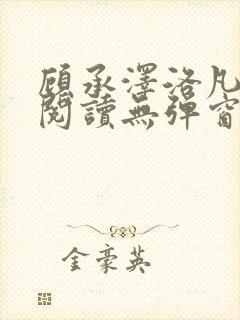 顧承澤洛凡
閱讀無彈窗
金豪英